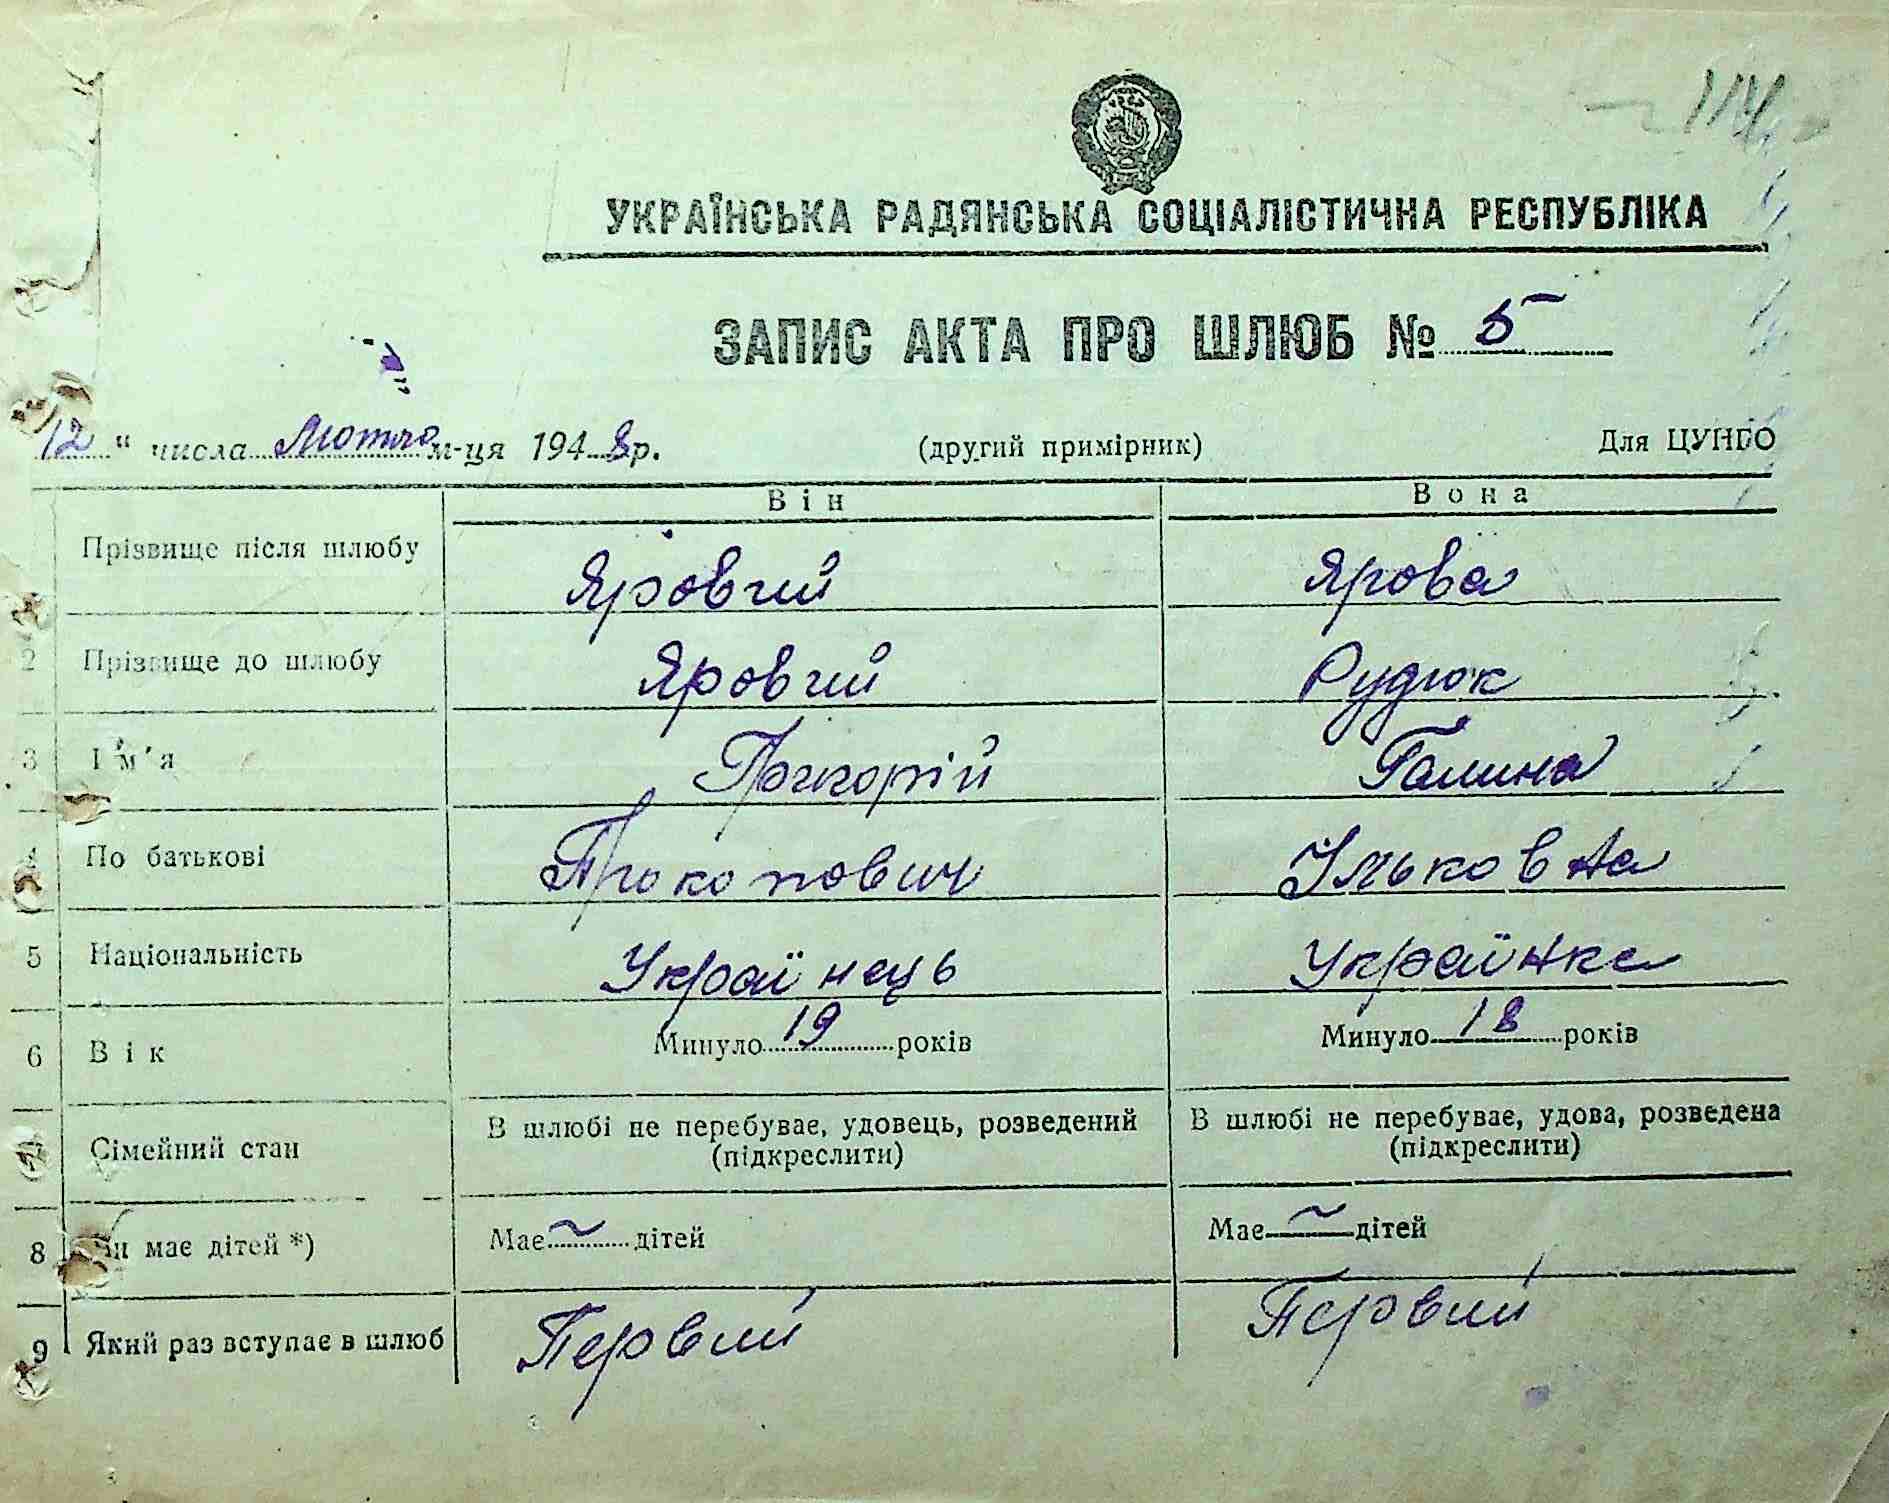 114
УКРАЇНСЬКА РАДЯНСЬКА СОЦІАЛІСТИЧНА РЕСПУБЛІКА
ЗАПИС АКТА ПРО ШЛЮБ № 5
12 " числа Лютого м-ця 1948 р. (другий примірник) Для ЦУНГО
Він Вона
Прізвище після шлюбу Яровий Ярова
2 Прізвище до шлюбу Яровий Рудюк
3 Ім'я Григорій Галина
4 По батькові Прокопович Ільковна
5 Національність Українець Українка
6 Вік Минуло 19 років Минуло 18 років
7 Сімейний стан В шлюбі не перебуває, удовець, розведений (підкреслити) В шлюбі не перебуває, удова, розведена (підкреслити)
8 Чи має дітей *) Має ~ дітей Має ~ дітей
9 Який раз вступає в шлюб Первий Первий